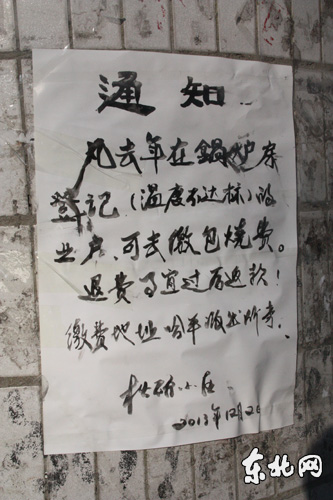 通知
凡去年在鍋炉房
登记(温度不达标)的
业户,可去缴包烧费。
退费事宜过后返款!
缴费地址哈平派出所旁.
小区
2013年12月2
东北网